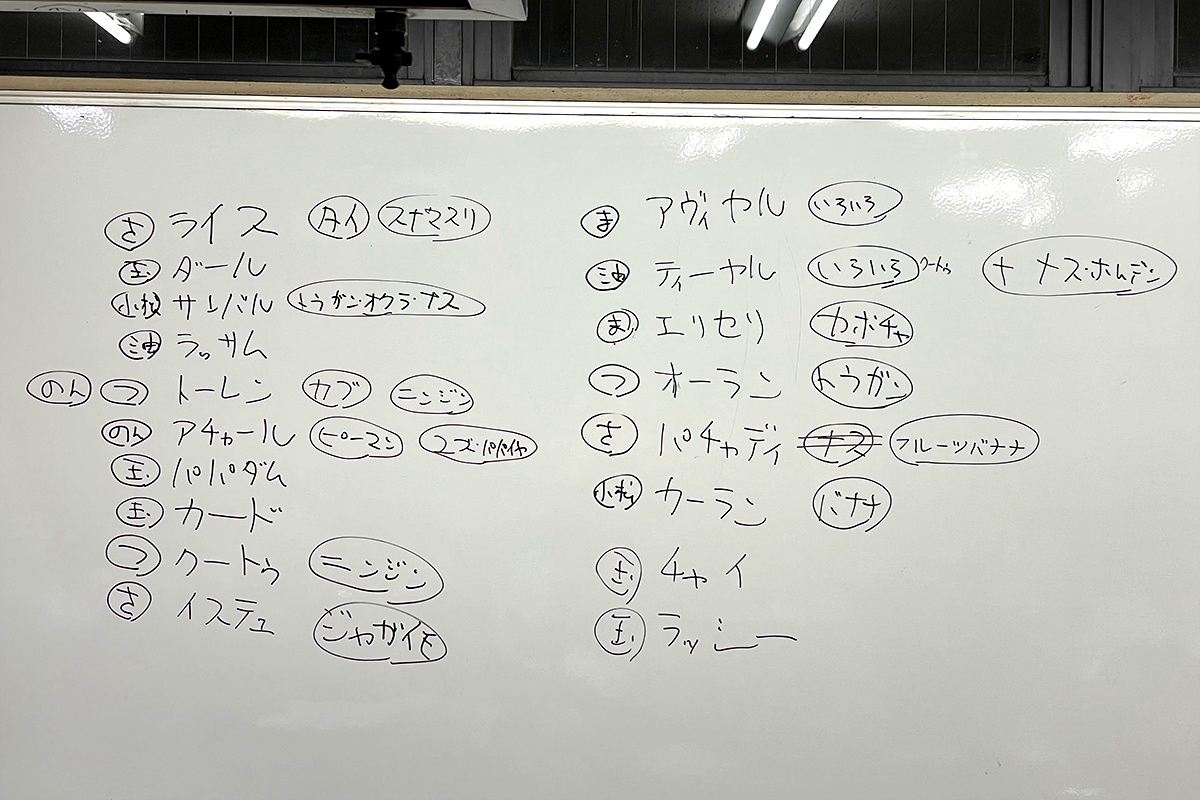 さ ライス タイ スナマスリ
玉 ダール
小松 サンバル トウガン・オクラ・ナス
油 ラッサム
のん つ トーレン カブ ニンジン
のん アチャール ピーマン ユズ・パパイヤ
玉 パパダム
玉 カード
つ クートゥ ニンジン
さ イステュ ジャガイモ
ま アヴィヤル いろいろ
油 ティーヤル いろいろ クートゥ
ま エリセリ カボチャ
つ オーラン トウガン
さ パチャディ ナス フルーツバナナ
小松 カーラン バナナ
玉 チャイ
玉 ラッシー